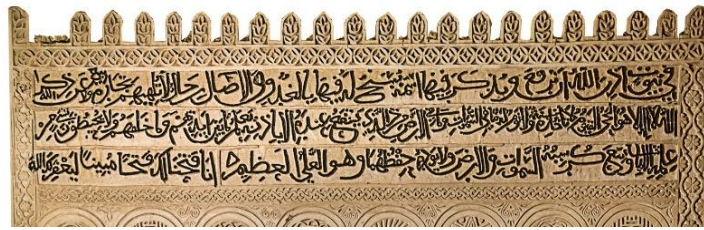 في بيوت اذن الله ان ترفع ويذكر فيها اسمه يسبح له فيها بالغدو والاصال رجال لا تلهيهم تجارة ولا بيع عن ذكر الله
الله لا اله الا هو الحي القيوم لا تاخذه سنة ولا نوم له ما في السموات وما في الارض من ذا الذي يشفع عنده الا باذنه يعلم ما بين ايديهم وما خلفهم ولا يحيطون بشيء من
علمه الا بما شاء وسع كرسيه السموات والارض ولا يؤده حفظهما وهو العلي العظيم انا فتحنا لك فتحا مبينا ليغفر لك الله